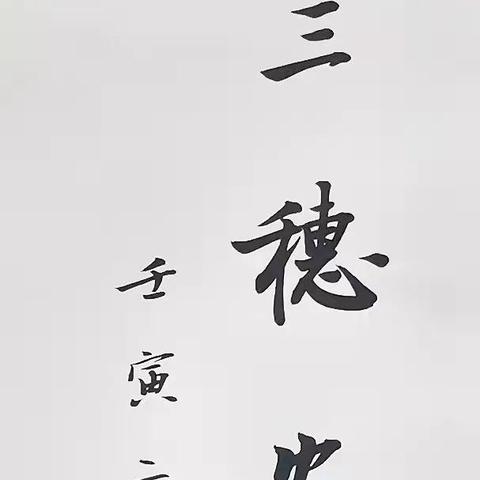 三穗
壬寅